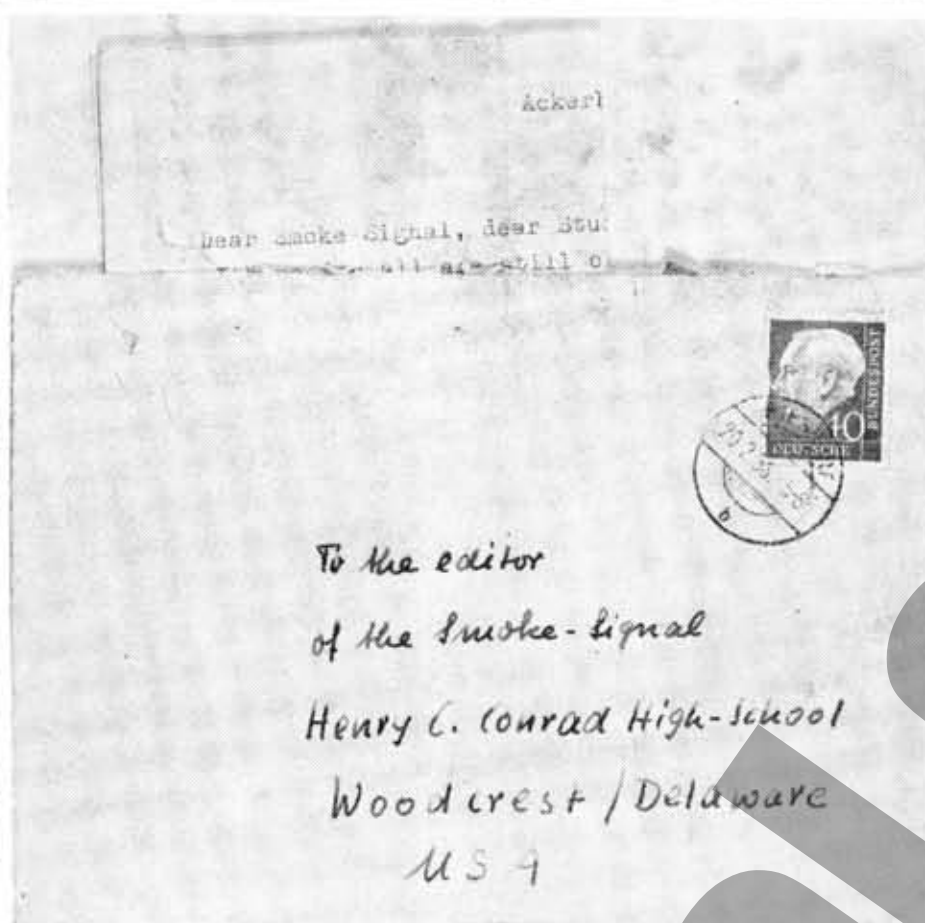 Ackerl
Dear Smoke Signal, dear Stu
all are still o
BUNDESPOST
40
DEUTSCHE
b
To the editor
of the Smoke-Signal
Henry C. Conrad High-School
Woodcrest / Delaware
USA